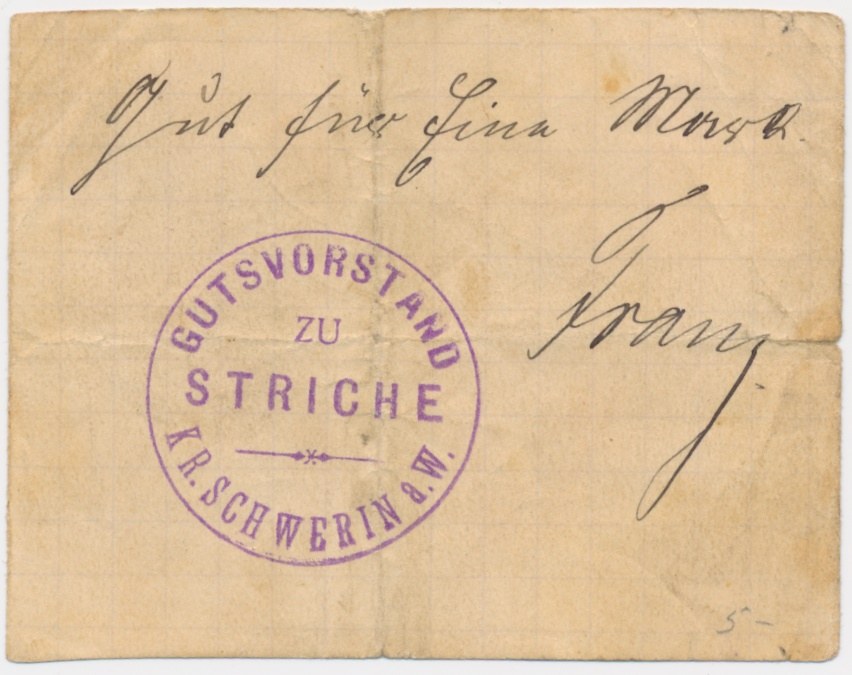 Gut für Eine Mark.
Franz.
GUTSVORSTAND
ZU
STRICHE
KR. SCHWERIN a. W.
5-